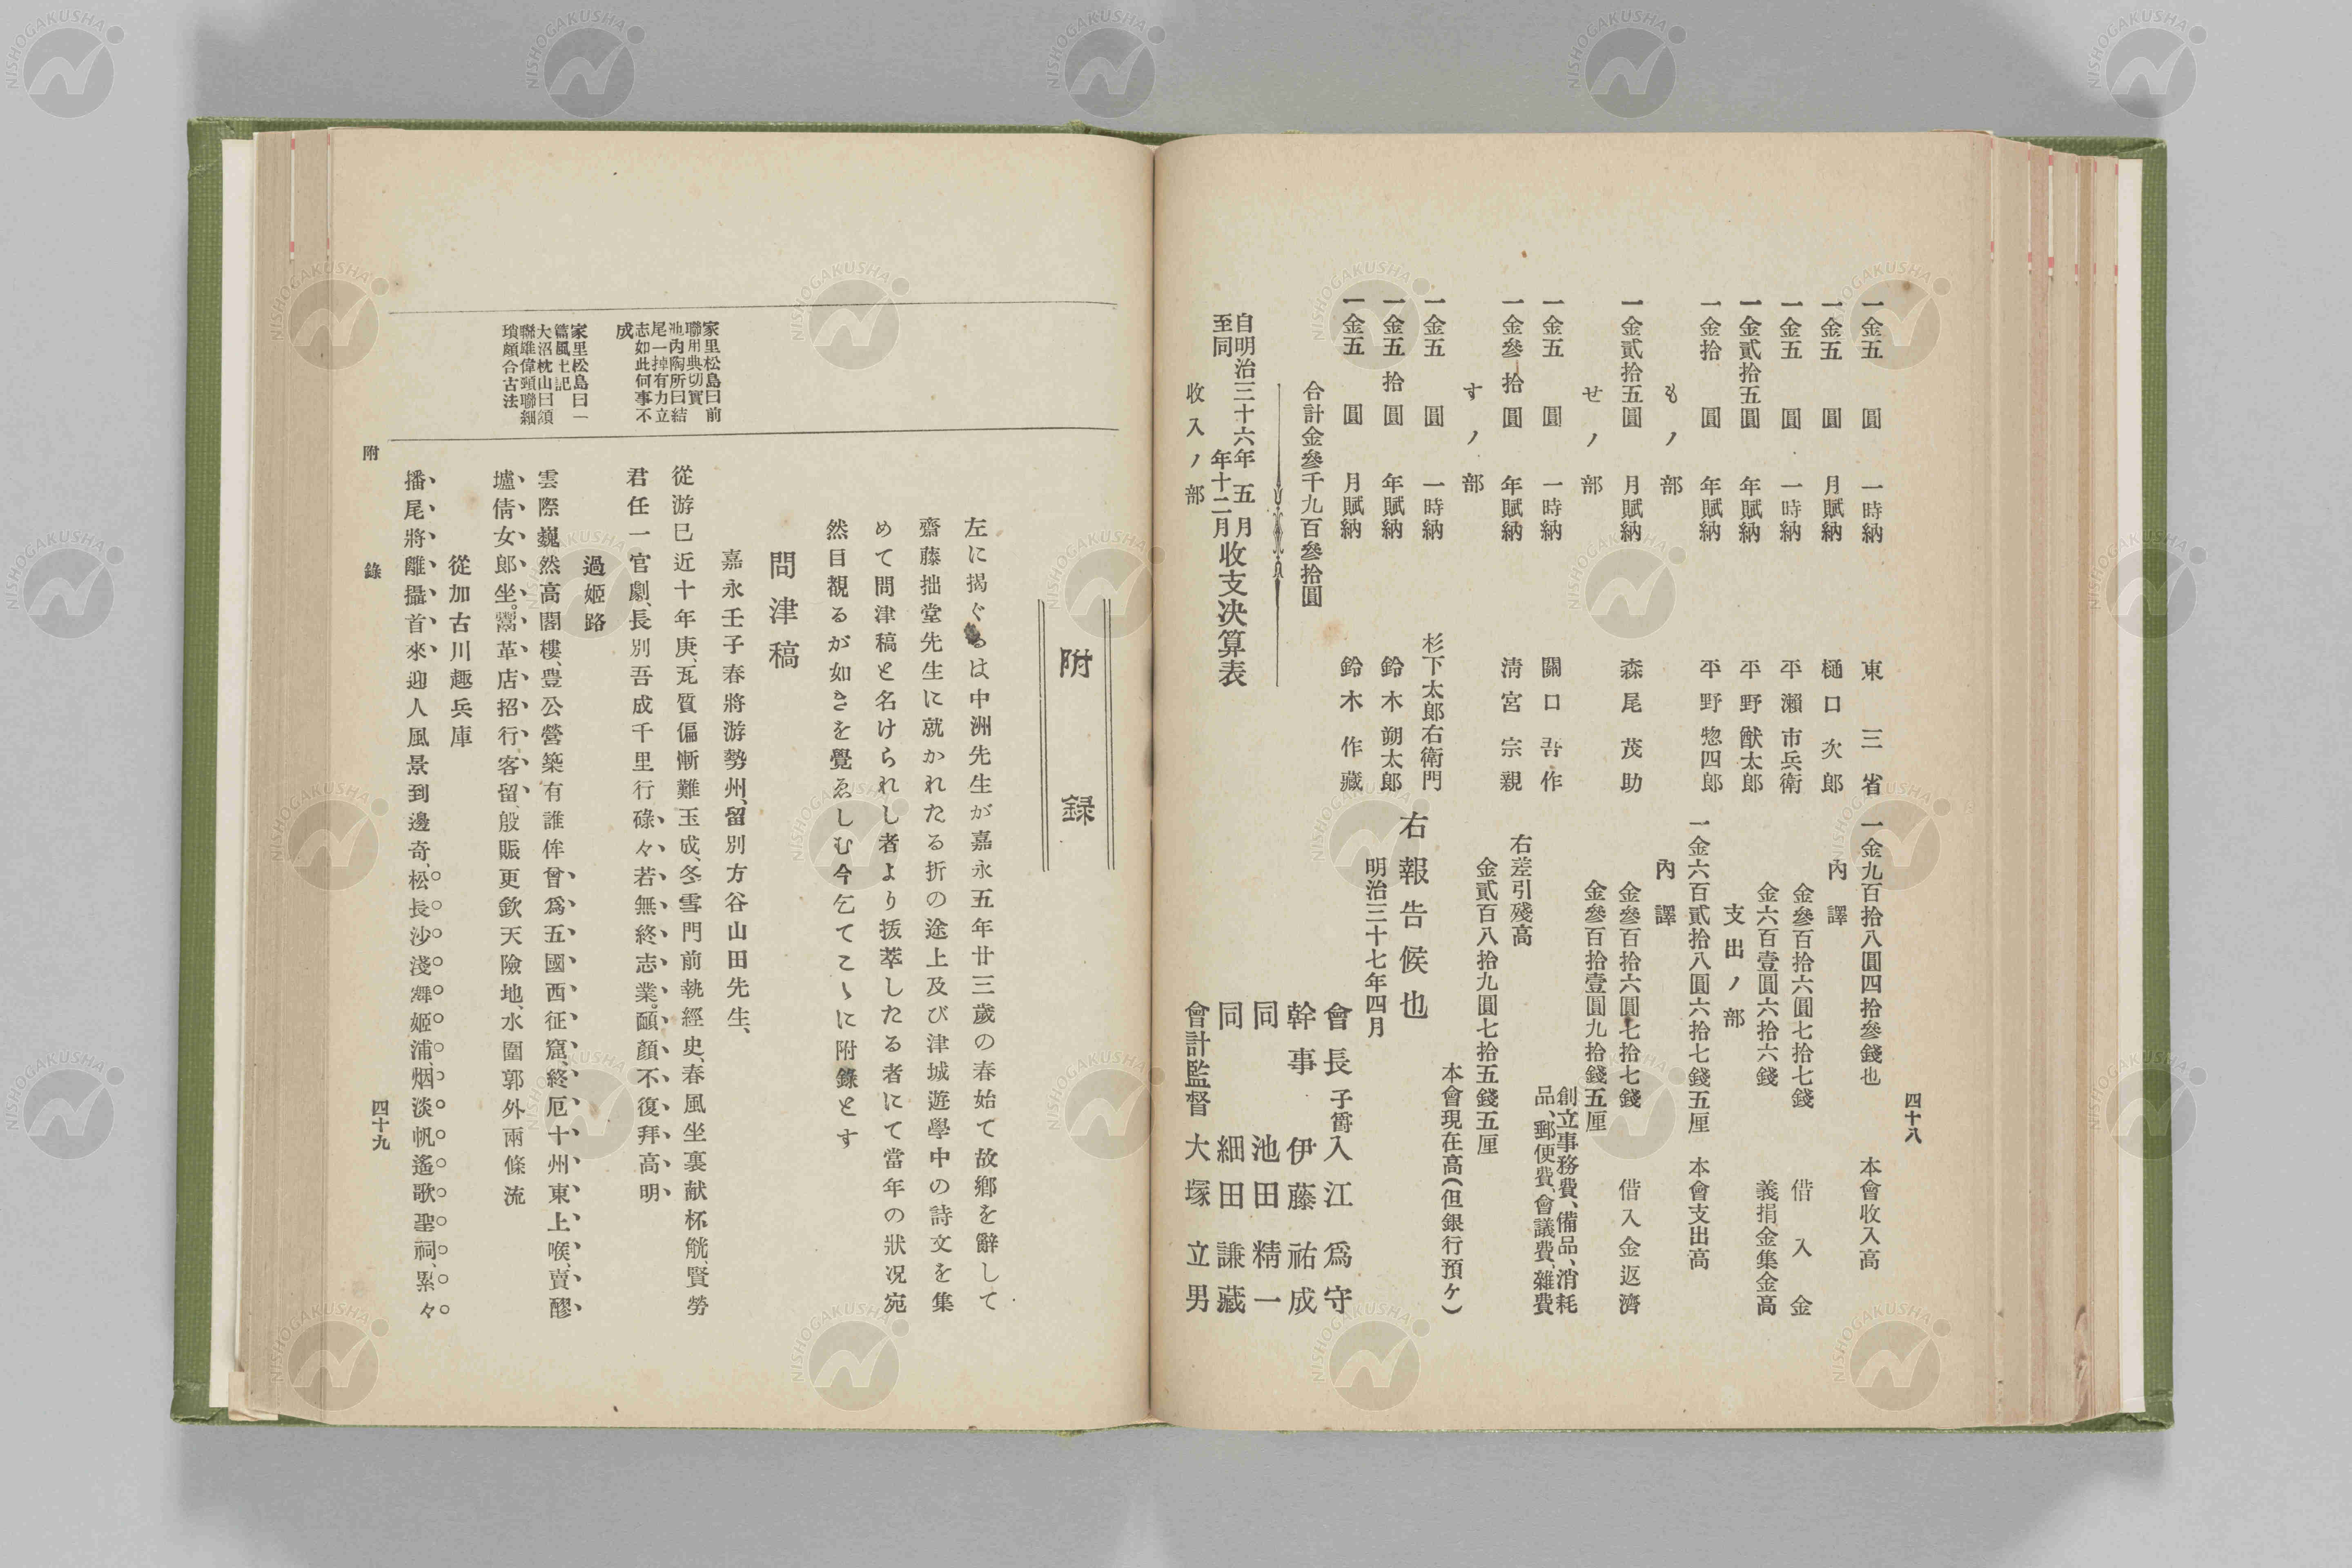 四十八
一金五圓 一時納 東三省
一金五圓 月賦納 樋口次郎
一金五圓 一時納 平瀨市兵衛
一金貳拾五圓 年賦納 平野猷太郎
一金拾圓 年賦納 平野惣四郎
もノ部
一金貳拾五圓 月賦納 森尾茂助
せノ部
一金五圓 一時納 關口吾作
一金參拾圓 年賦納 淸宮宗親
すノ部
一金五圓 一時納 杉下太郎右衛門
一金五拾圓 年賦納 鈴木朔太郎
一金五圓 月賦納 鈴木作藏
合計金參千九百參拾圓
自明治三十六年五月
至同年十二月
收支决算表
收入ノ部
一金九百拾八圓四拾參錢也 本會收入高
內譯
金參百拾六圓七拾七錢 借入金
金六百壹圓六拾六錢 義捐金集金高
支出ノ部
一金六百貳拾八圓六拾七錢五厘 本會支出高
內譯
金參百拾六圓七拾七錢 借入金返濟
金參百拾壹圓九拾錢五厘
創立事務費、備品、消耗
品、郵便費、會議費、雜費
右差引殘高
金貳百八拾九圓七拾五錢五厘
本會現在高(但銀行預ケ)
右報告候也
明治三十七年四月
會長子爵入江爲守
幹事伊藤祐成
同池田精一
同細田謙藏
會計監督大塚立男
附錄
左に揭ぐるは中洲先生が嘉永五年廿三歲の春始て故鄕を辭して
齋藤拙堂先生に就かれたる折の途上及び津城遊學中の詩文を集
めて問津稿と名けられし者より拔萃したる者にて當年の狀况宛
然目覩るが如きを覺ゑしむ今乞てこゝに附錄とす
問津稿
嘉永壬子春將游勢州、留別方谷山田先生、
從游已近十年庚、瓦質偏慚難玉成、冬雪門前執經史、春風坐裏献杯觥、賢勞
君任一官劇、長別吾成千里行、碌々若無終志業。靦顏不復拜高明
過姬路
雲際巍然高閣樓、豊公營築有誰侔、曾爲五國西征窟、終厄十州東上喉、賣醪
壚倩女郞坐。鬻革店招行客留、殷賑更欽天險地、水圍郭外兩條流
從加古川趣兵庫
播尾將離攝首來、迎人風景到邊奇、松長沙淺舞姬浦、烟淡帆遙歌聖祠、累々
家里松島曰前
聯用典切實
池內陶所曰結
尾一掉有力立
志如此何事不
成
家里松島曰一
篇風土記
大沼枕山曰頷
聯雄偉頸聯細
瑣頗合古法
附錄
四十九